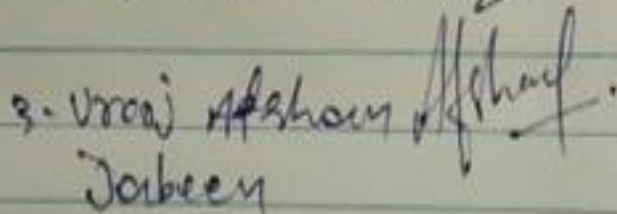 3. Uroaj Afshan Afshan
Jabeen